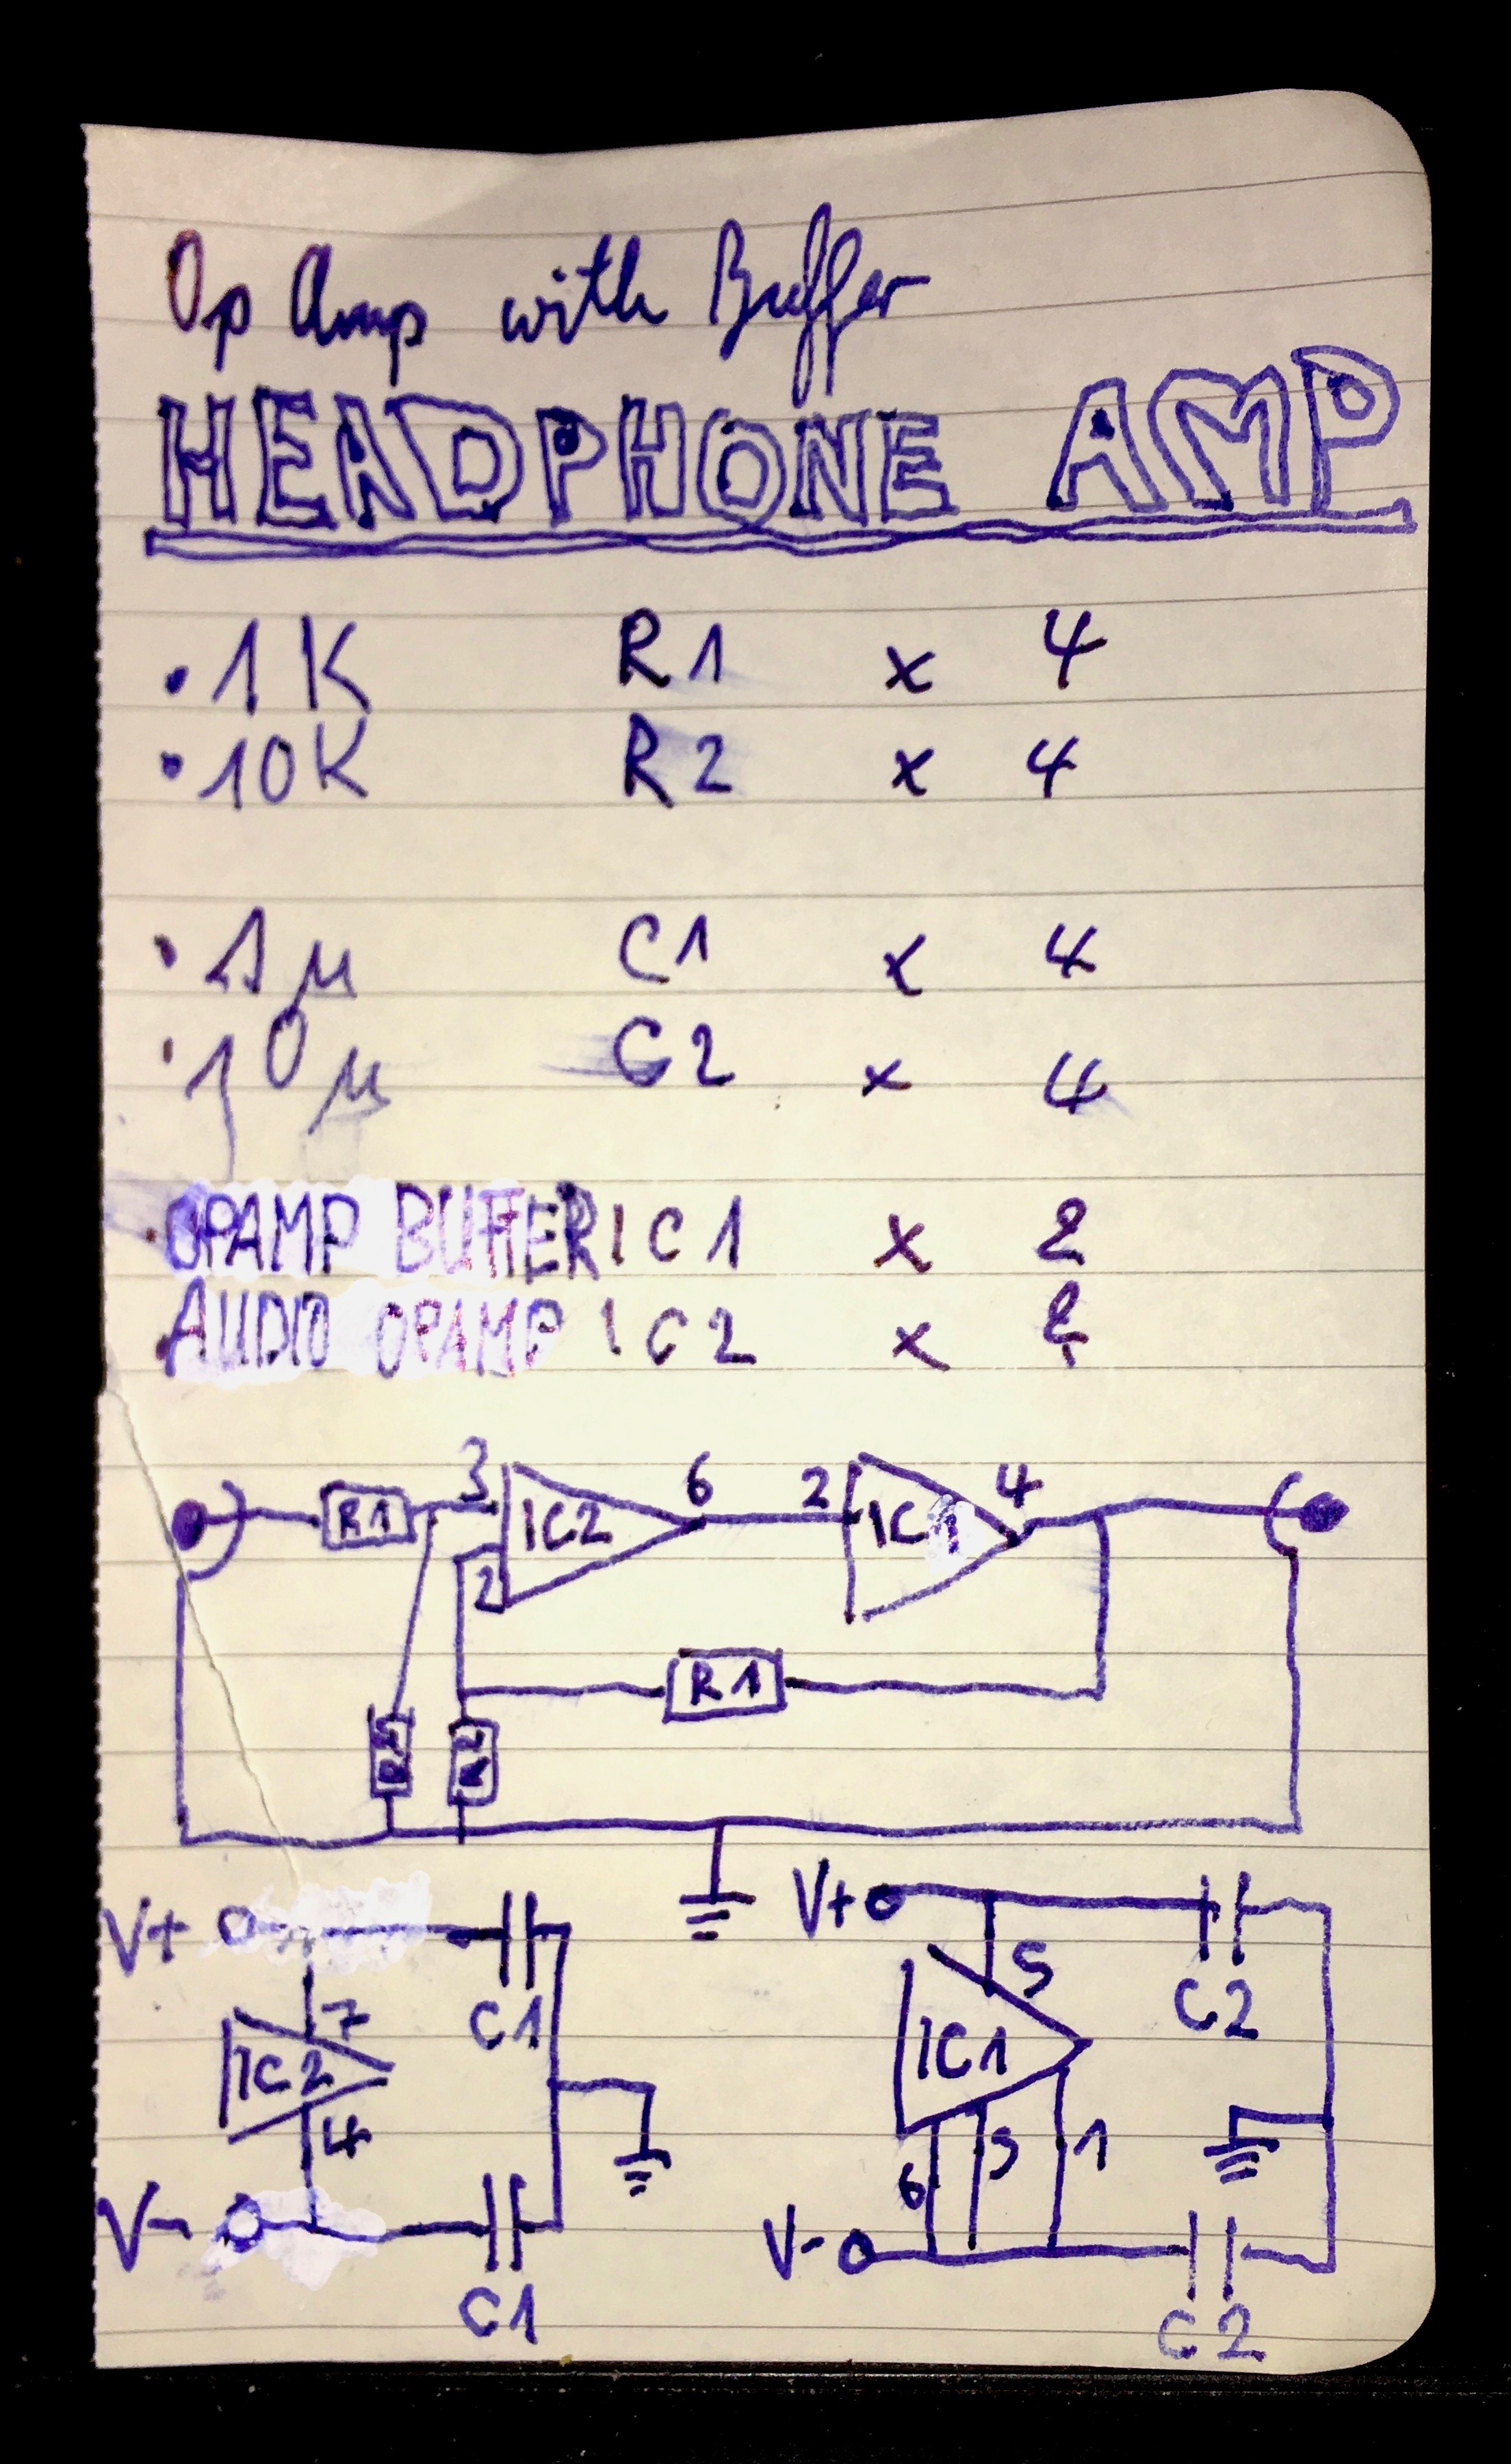 Op Amp with Buffer
HEADPHONE AMP
• 1K R1 x 4
• 10K R2 x 4
• 1µ C1 x 4
• 10µ C2 x 4
• OPAMP BUFFER IC1 x 2
• AUDIO OPAMP IC2 x 2
R1 3 IC2 6 2 IC1 4
2
R1
R2 R2
V+ V+
7 C1 5 C2
IC2 IC1
4 6 3 1
V- V-
C1 C2